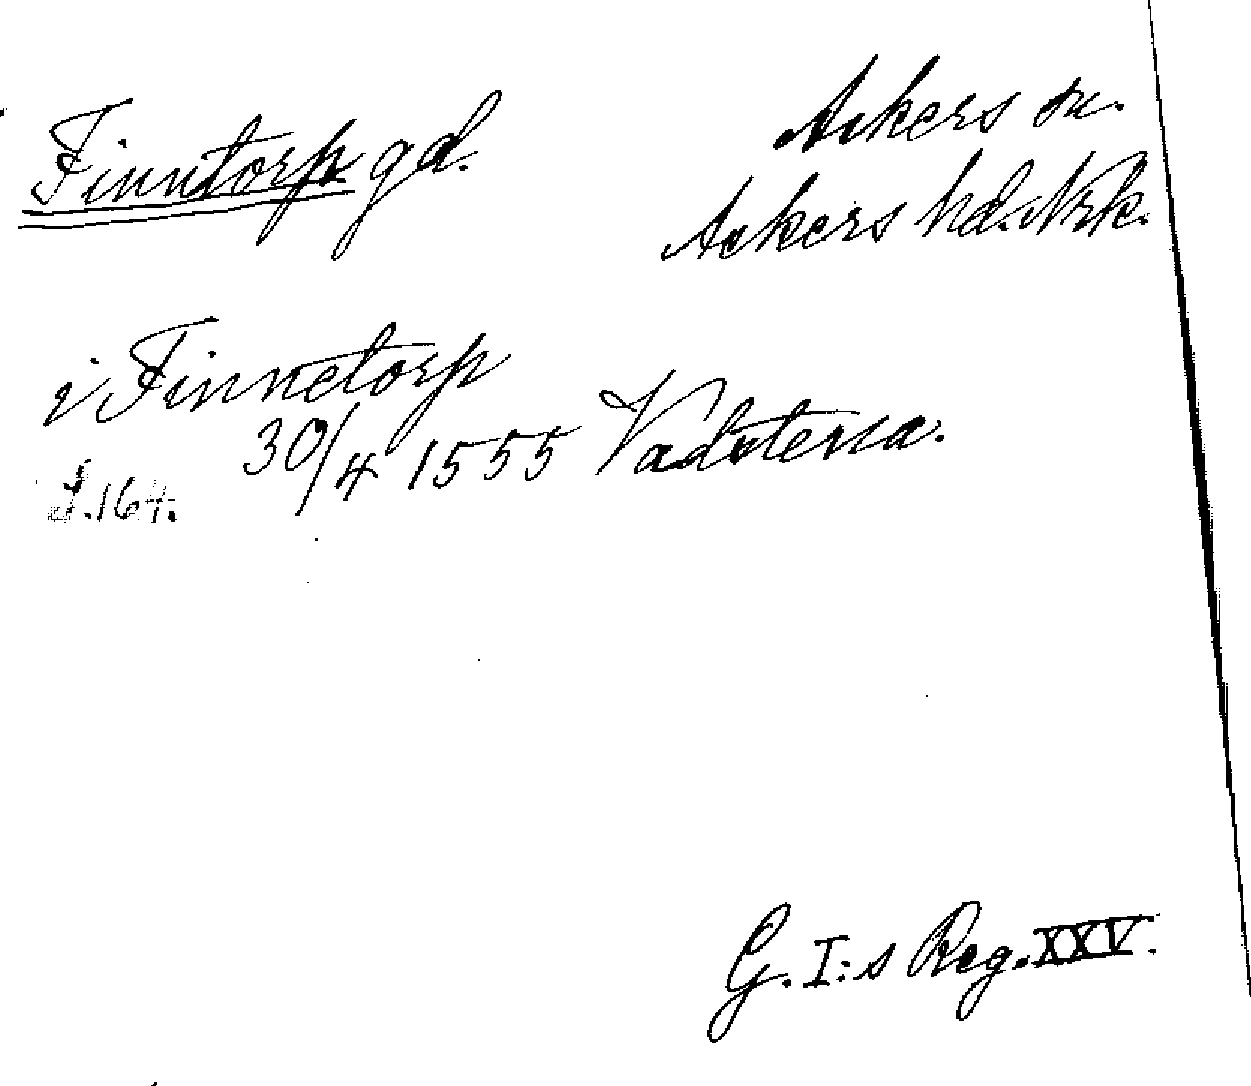 Finntorp gd. Askers sn.
Askers hd. Nrk.
i Finnetorp
30/4 1555 Vadstena.
S. 164.
G. I:s Reg. XXV.